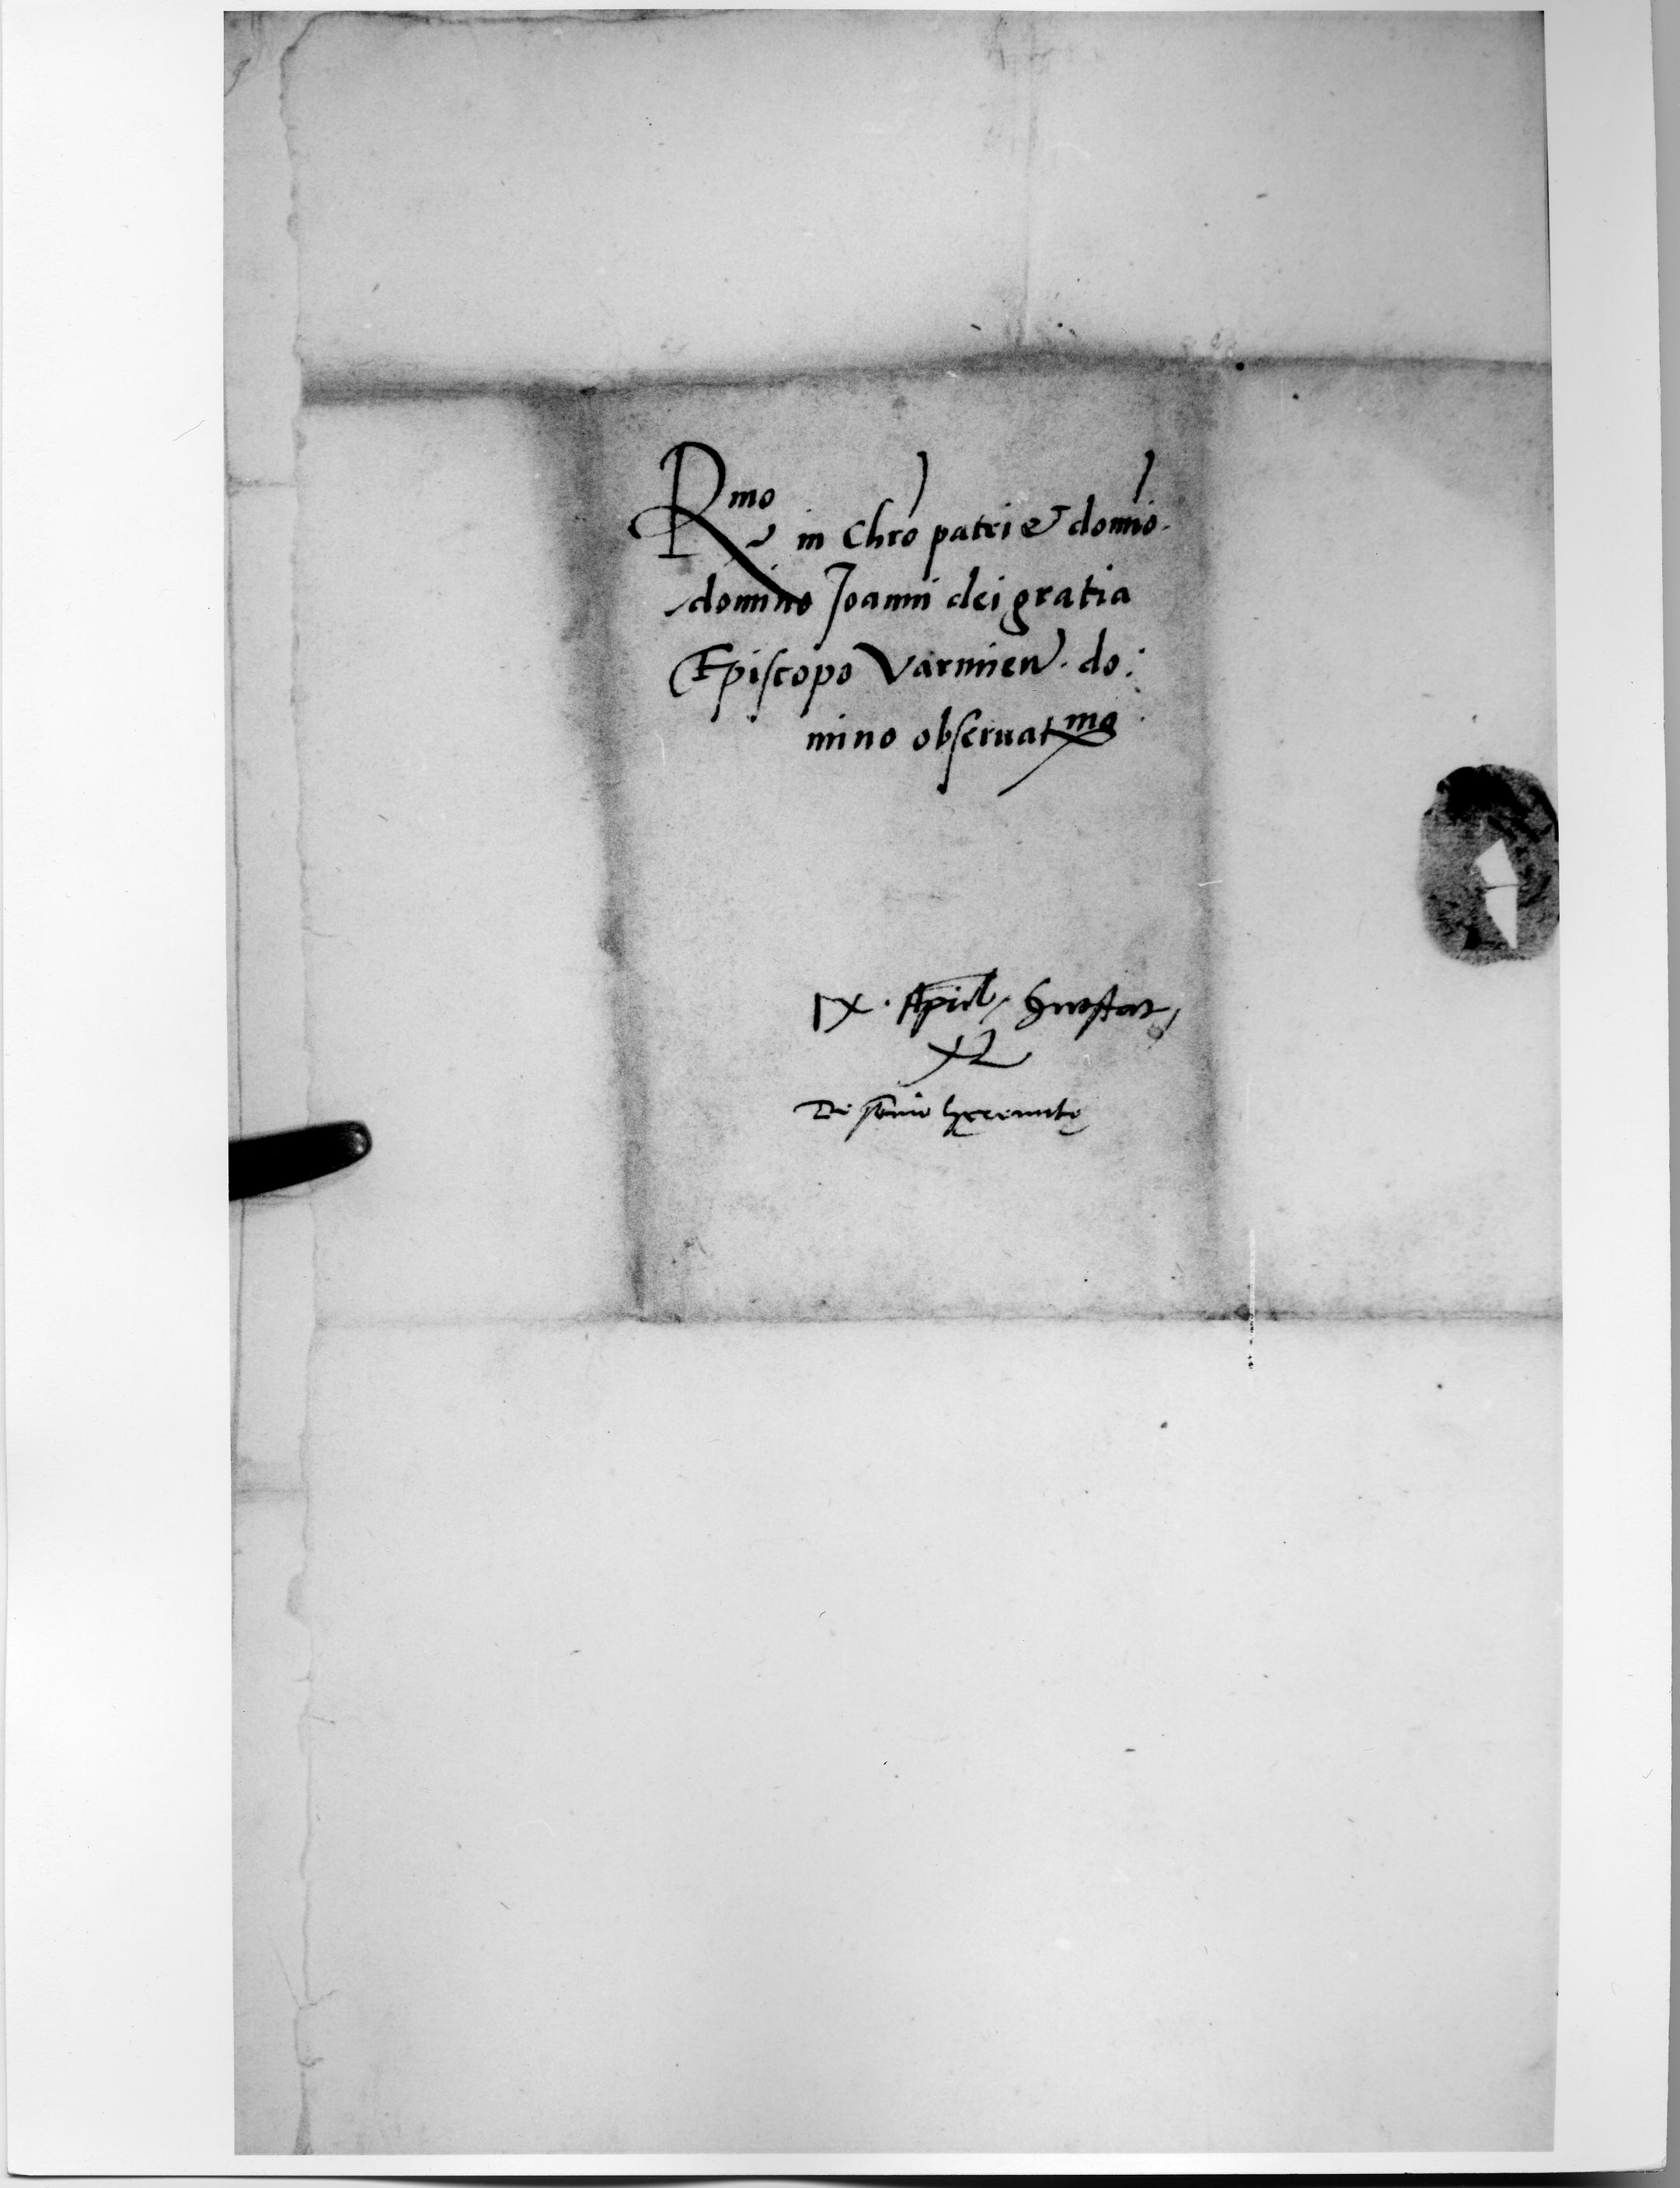 Rmo in Chro patri et domio
domino Joanni dei gratia
Episcopo Varmien. do:
mino obseruatmo
IX. April
De hęremitę